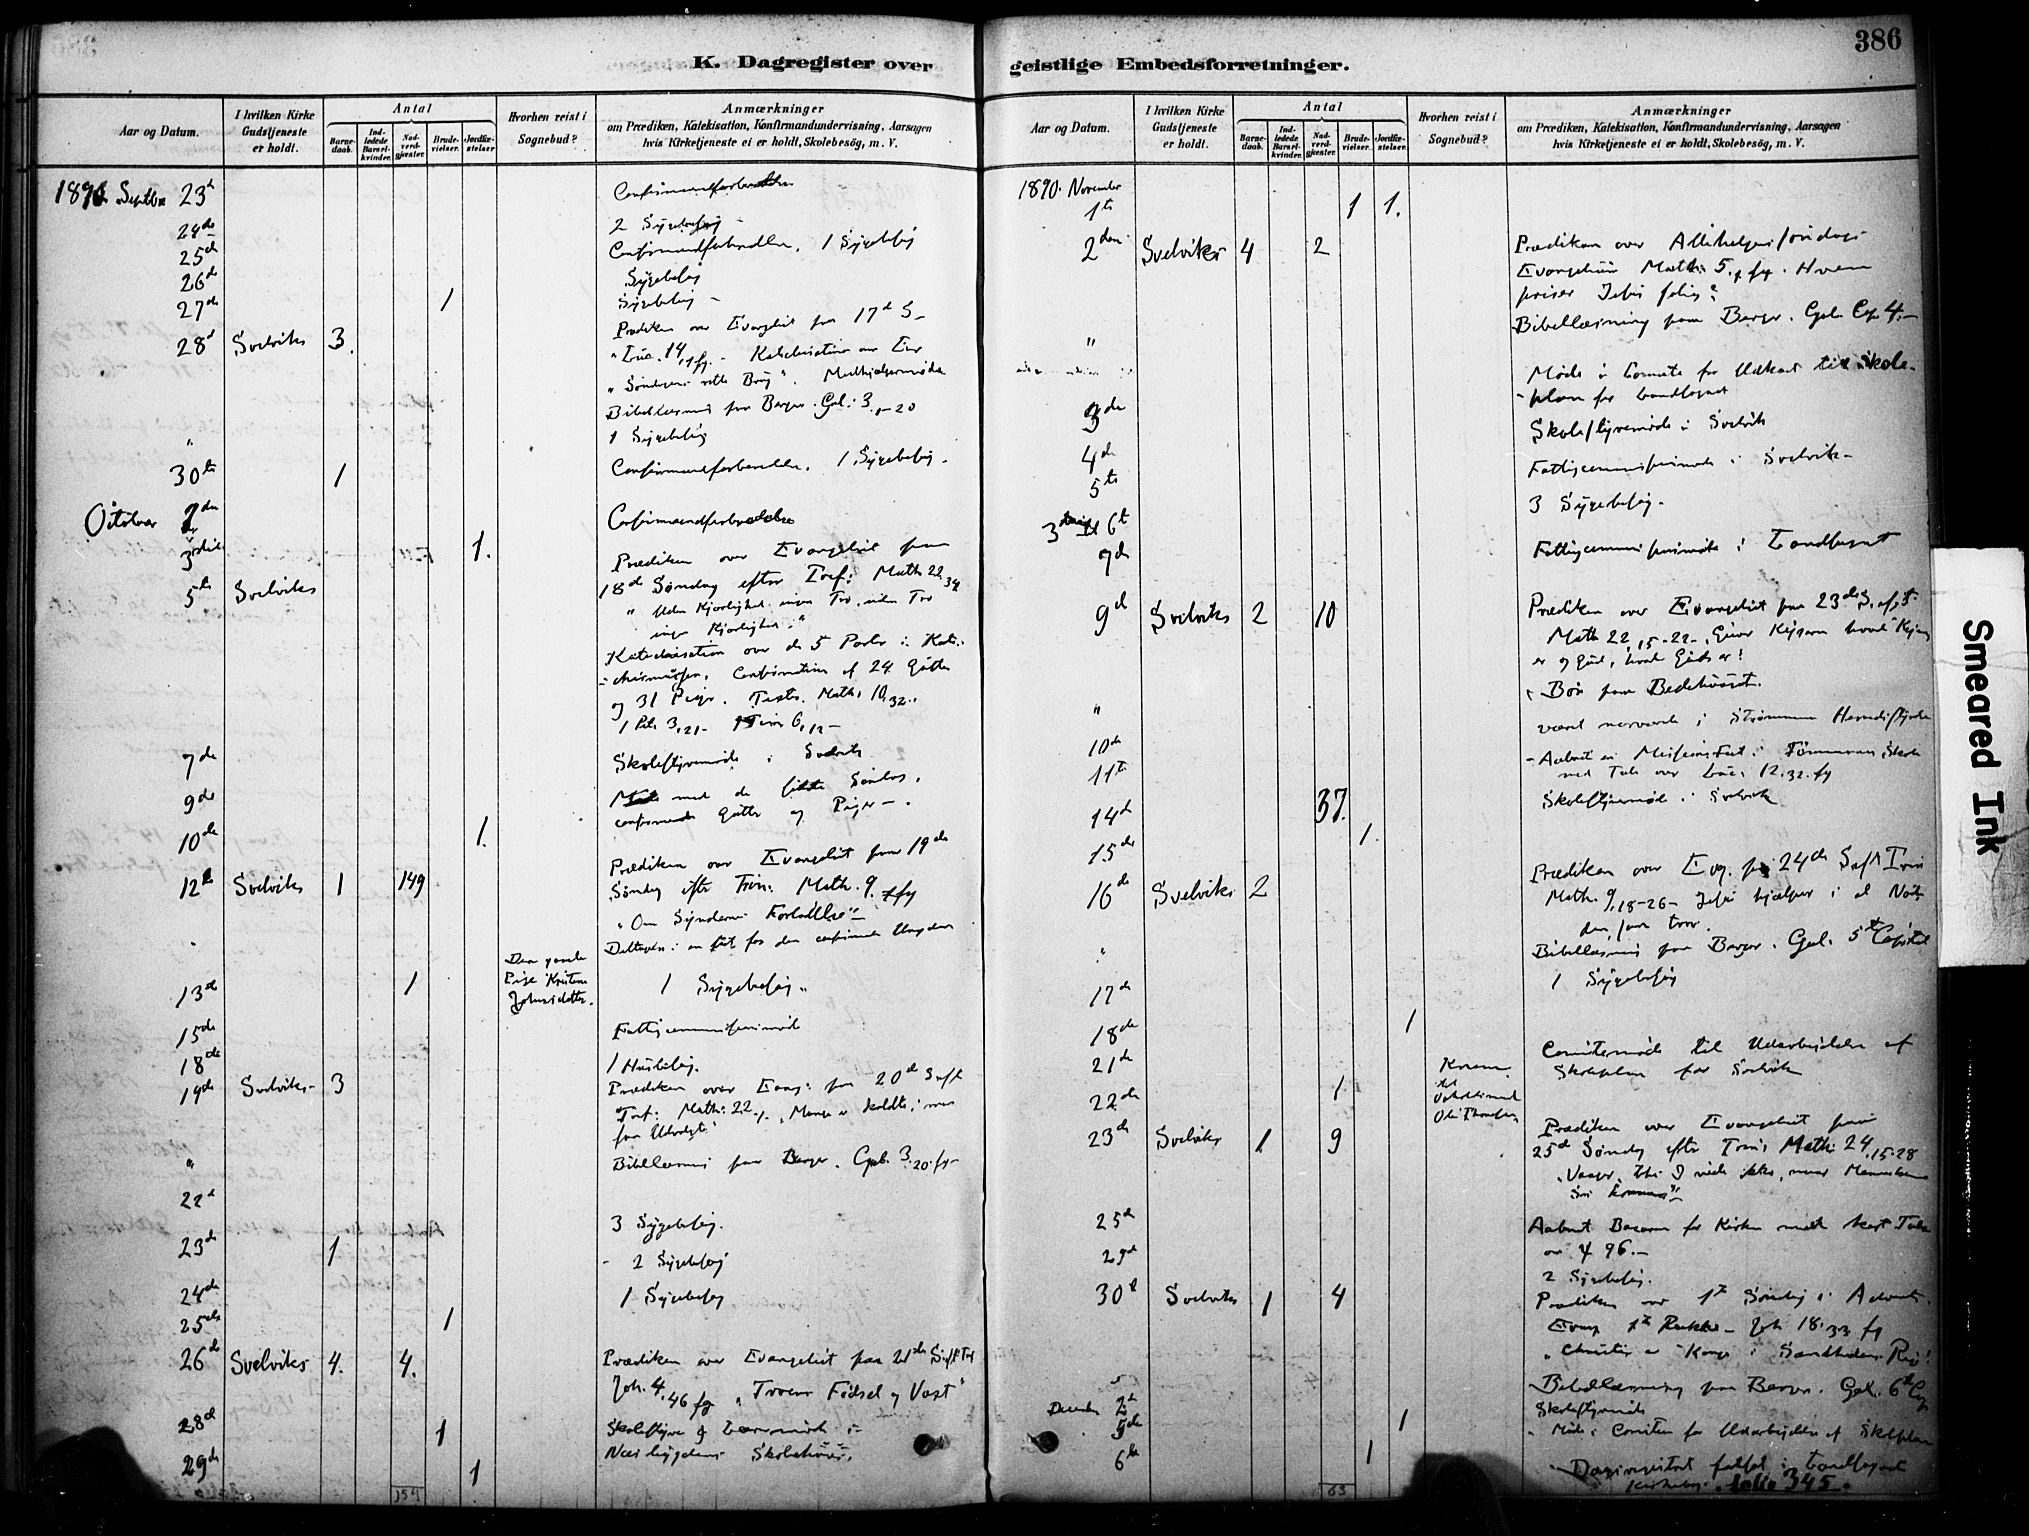 386
K. Dagregister over
geistlige Embedsforretninger.
Aar og Datum.
I hvilken Kirke Gudstjeneste er holdt.
Antal
Barnedaab.
Indledede Barselkvinder.
Nadverdgjester.
Brudevielser.
Jordfæstelser
Hvorhen reist i Sognebud?
Anmærkninger
om Prædiken, Katekisation, Konfirmandundervisning, Aarsagen
hvis Kirketjeneste ei er holdt, Skolebesög, m. V.
1890 Septbr 23d Confirmandforberedelse
24de 2 Sygebesøg
25d Confirmandforberedelse. 1 Sygebesøg
26d Sygebesøg
27d 1 Sygebesøg
28d Svelviks 3. Prædiken over Evangeliet paa 17d S
Luc. 14,1 fg. - Katechisation over
"Søndagens rette Brug".
Bibellæsning paa Berger. Gal: 3,1-20
" 1 Sygebesøg
30te 1 Confirmandforberedelse. 1 Sygebesøg.
October
Confirmandforberedelse
3die 1.
5te Svelviks Prædiken over Evangeliet paa
18d Søndag efter Tref: Math 22,34
"Uden Kjærlighed ingen Tro, uden Tro
ingen Kjærlighed."
Katechisation over de 5 Parter i Kate-
chismussen. Confirmation af 24 Gutter
og 31 Piger. Text. Math: 10,32.
1 Pet. 3,21 - 1 Tim 6,12 -
7de Skolestyremøde i Svelvik
9de Møde med de sidste Søndag
confirmerede Gutter og Piger -.
10de 1.
12te Svelviks 1 149 Prædiken over Evangeliet paa 19de
Søndag efter Trin: Math. 9.1 fg
"Om Syndernes Forladelse"
Deltagen i en Fest for den confirmerede Ungdom
13d 1 Den gamle
Pige Kristine
Johnsdatter. 1 Sygebesøg
15de Fattigcommissionsmøde
18de 1 Husbesøg.
19de Svelviks 3 Prædiken over Evang: paa 20d S eft
Tref: Math: 22,1. "Mange er kaldte, men
faa Udvalgte"
" Bibellæsning paa Berger. Gal. 3,20 fg -
22d 3 Sygebesøg.
23de 1 2 Sygebesøg
24de 1 Sygebesøg
25de 1
26d Svelviks 4. 4. Prædiken over Evangeliet paa 21de S eft Tref
Joh. 4.46 fg "Troens Fødsel og Vext"
28d 1 Skolestyre og
Nesbygdens Skolehuus.
29de 1
154
Aar og Datum.
I hvilken Kirke Gudstjeneste er holdt.
Antal
Barnedaab.
Indledede Barselkvinder.
Nadverdgjester.
Brudevielser.
Jordfæstelser
Hvorhen reist i Sognebud?
Anmærkninger
om Prædiken, Katekisation, Konfirmandundervisning, Aarsagen
hvis Kirketjeneste ei er holdt, Skolebesög, m. V.
1890. November
1te 1 1.
2den Svelviks 4 2 Prædiken over Allehelgensøndags
Evangelium Math: 5,1 fg. Hvem
priser Jesus salig?
" Bibellæsning paa Berger. Gal. Cap. 4. -
Møde i Comite for Udkast til Skole-
plan for Landsognet
3de Skolestyremøde i Svelvik
4de Fattigcommissionsmøde i Svelvik -
5te 3 Sygebesøg -
6t
7de Fattigcommissionsmøde i Landsognet
9d Svelviks 2 10 Prædiken over Evangeliet paa 23de S. ef. T.
Math 22,15-22 -
er og Gud, hvad Guds er!
" Bøn paa Bedehuset.
10de været nærværende i Strømmen
11te Aabnet en Missionsfest i Tømmeraas Skole
med Tale over Luc: 12.32. fg
14d 37. Skolestyremøde i Svelvik
15de 1.
16de Svelviks 2 Prædiken over Evg. paa 24de S eft Trin
Math. 9,18-26 - Jesus hjælper i al Nød
den, som tror.
" Bibellæsning paa Berger. Gal. 5te Capitel
17de 1 Sygebesøg
18de 1
21de Comitemøde til Udarbejdelse af
Skoleplan for Svelvik
22de 1
23de Svelviks 1 9 Prædiken over Evangeliet paa
25d Søndag efter Trin: Math: 24,15-28
"Vaager, thi I vide ikke, naar Menneskens
Søn kommer"
25d Aabnet Basaren for Kirken med kort Tale
over ψ 96. -
29d 2 Sygebesøg.
30d Svelviks 1 4 Prædiken over 1te Søndag i Advents
Evang 1te Række - Joh 18,33 fg
"Christus er Konge i Sandhedens Rige!
Bibellæsning paa Berger. Gal. 6te Cap
2d Skolestyremøde
5de 1 Møde i Comiteen for Udarbejdelse af Skolplan
6te 1
Dagregistret fortsat i Landsognets
Kirkebog. folio 345.
63
Smeared Ink